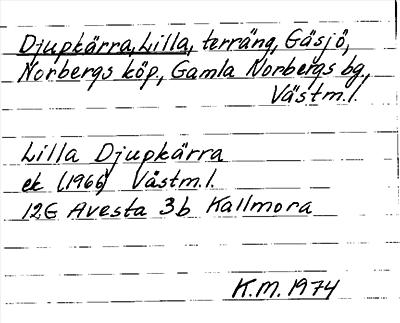 Djupkärra, Lilla, terräng, Gäsjö,
Norbergs köp., Gamla Norbergs bg.,
Västm.l.
Lilla Djupkärra
ek (1966) Västm.l.
12G Avesta 3b Kallmora
K.M. 1974